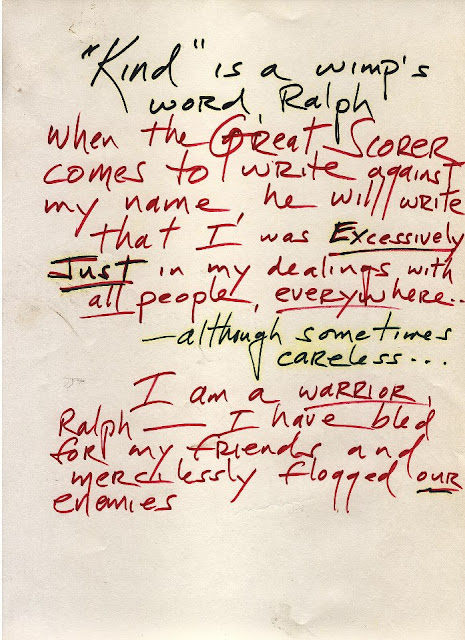 "Kind" is a wimp's
word, Ralph
when the Great Scorer
comes to write against
my name, he will write
that I was Excessively
Just in my dealings with
all people, everywhere..
—although sometimes
careless...
I am a warrior,
Ralph — I have bled
for my friends and
mercilessly flogged our
enemies